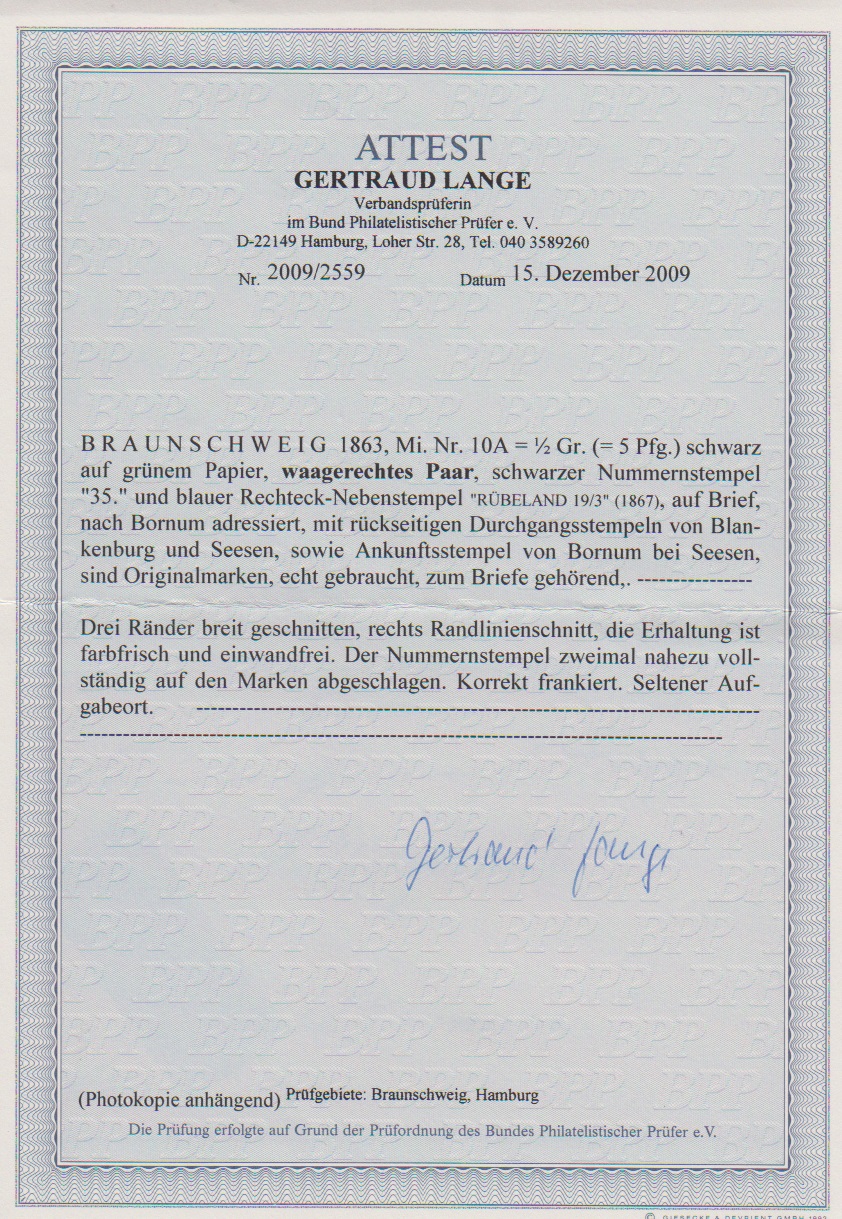 ATTEST
GERTRAUD LANGE
Verbandsprüferin
im Bund Philatelistischer Prüfer e. V.
D-22149 Hamburg, Loher Str. 28, Tel. 040 3589260
Nr. 2009/2559 Datum 15. Dezember 2009
BRAUNSCHWEIG 1863, Mi. Nr. 10A = ½ Gr. (= 5 Pfg.) schwarz
auf grünem Papier, waagerechtes Paar, schwarzer Nummernstempel
"35." und blauer Rechteck-Nebenstempel "RÜBELAND 19/3" (1867), auf Brief,
nach Bornum adressiert, mit rückseitigen Durchgangsstempeln von Blan-
kenburg und Seesen, sowie Ankunftsstempel von Bornum bei Seesen,
sind Originalmarken, echt gebraucht, zum Briefe gehörend,. ----------------
Drei Ränder breit geschnitten, rechts Randlinienschnitt, die Erhaltung ist
farbfrisch und einwandfrei. Der Nummernstempel zweimal nahezu voll-
ständig auf den Marken abgeschlagen. Korrekt frankiert. Seltener Auf-
gabeort. ------------------------------------------------------------------------------
-----------------------------------------------------------------------------------------
Gertraud Lange
(Photokopie anhängend) Prüfgebiete: Braunschweig, Hamburg
Die Prüfung erfolgte auf Grund der Prüfordnung des Bundes Philatelistischer Prüfer e.V.
© GIESECKE & DEVRIENT GMBH 1992